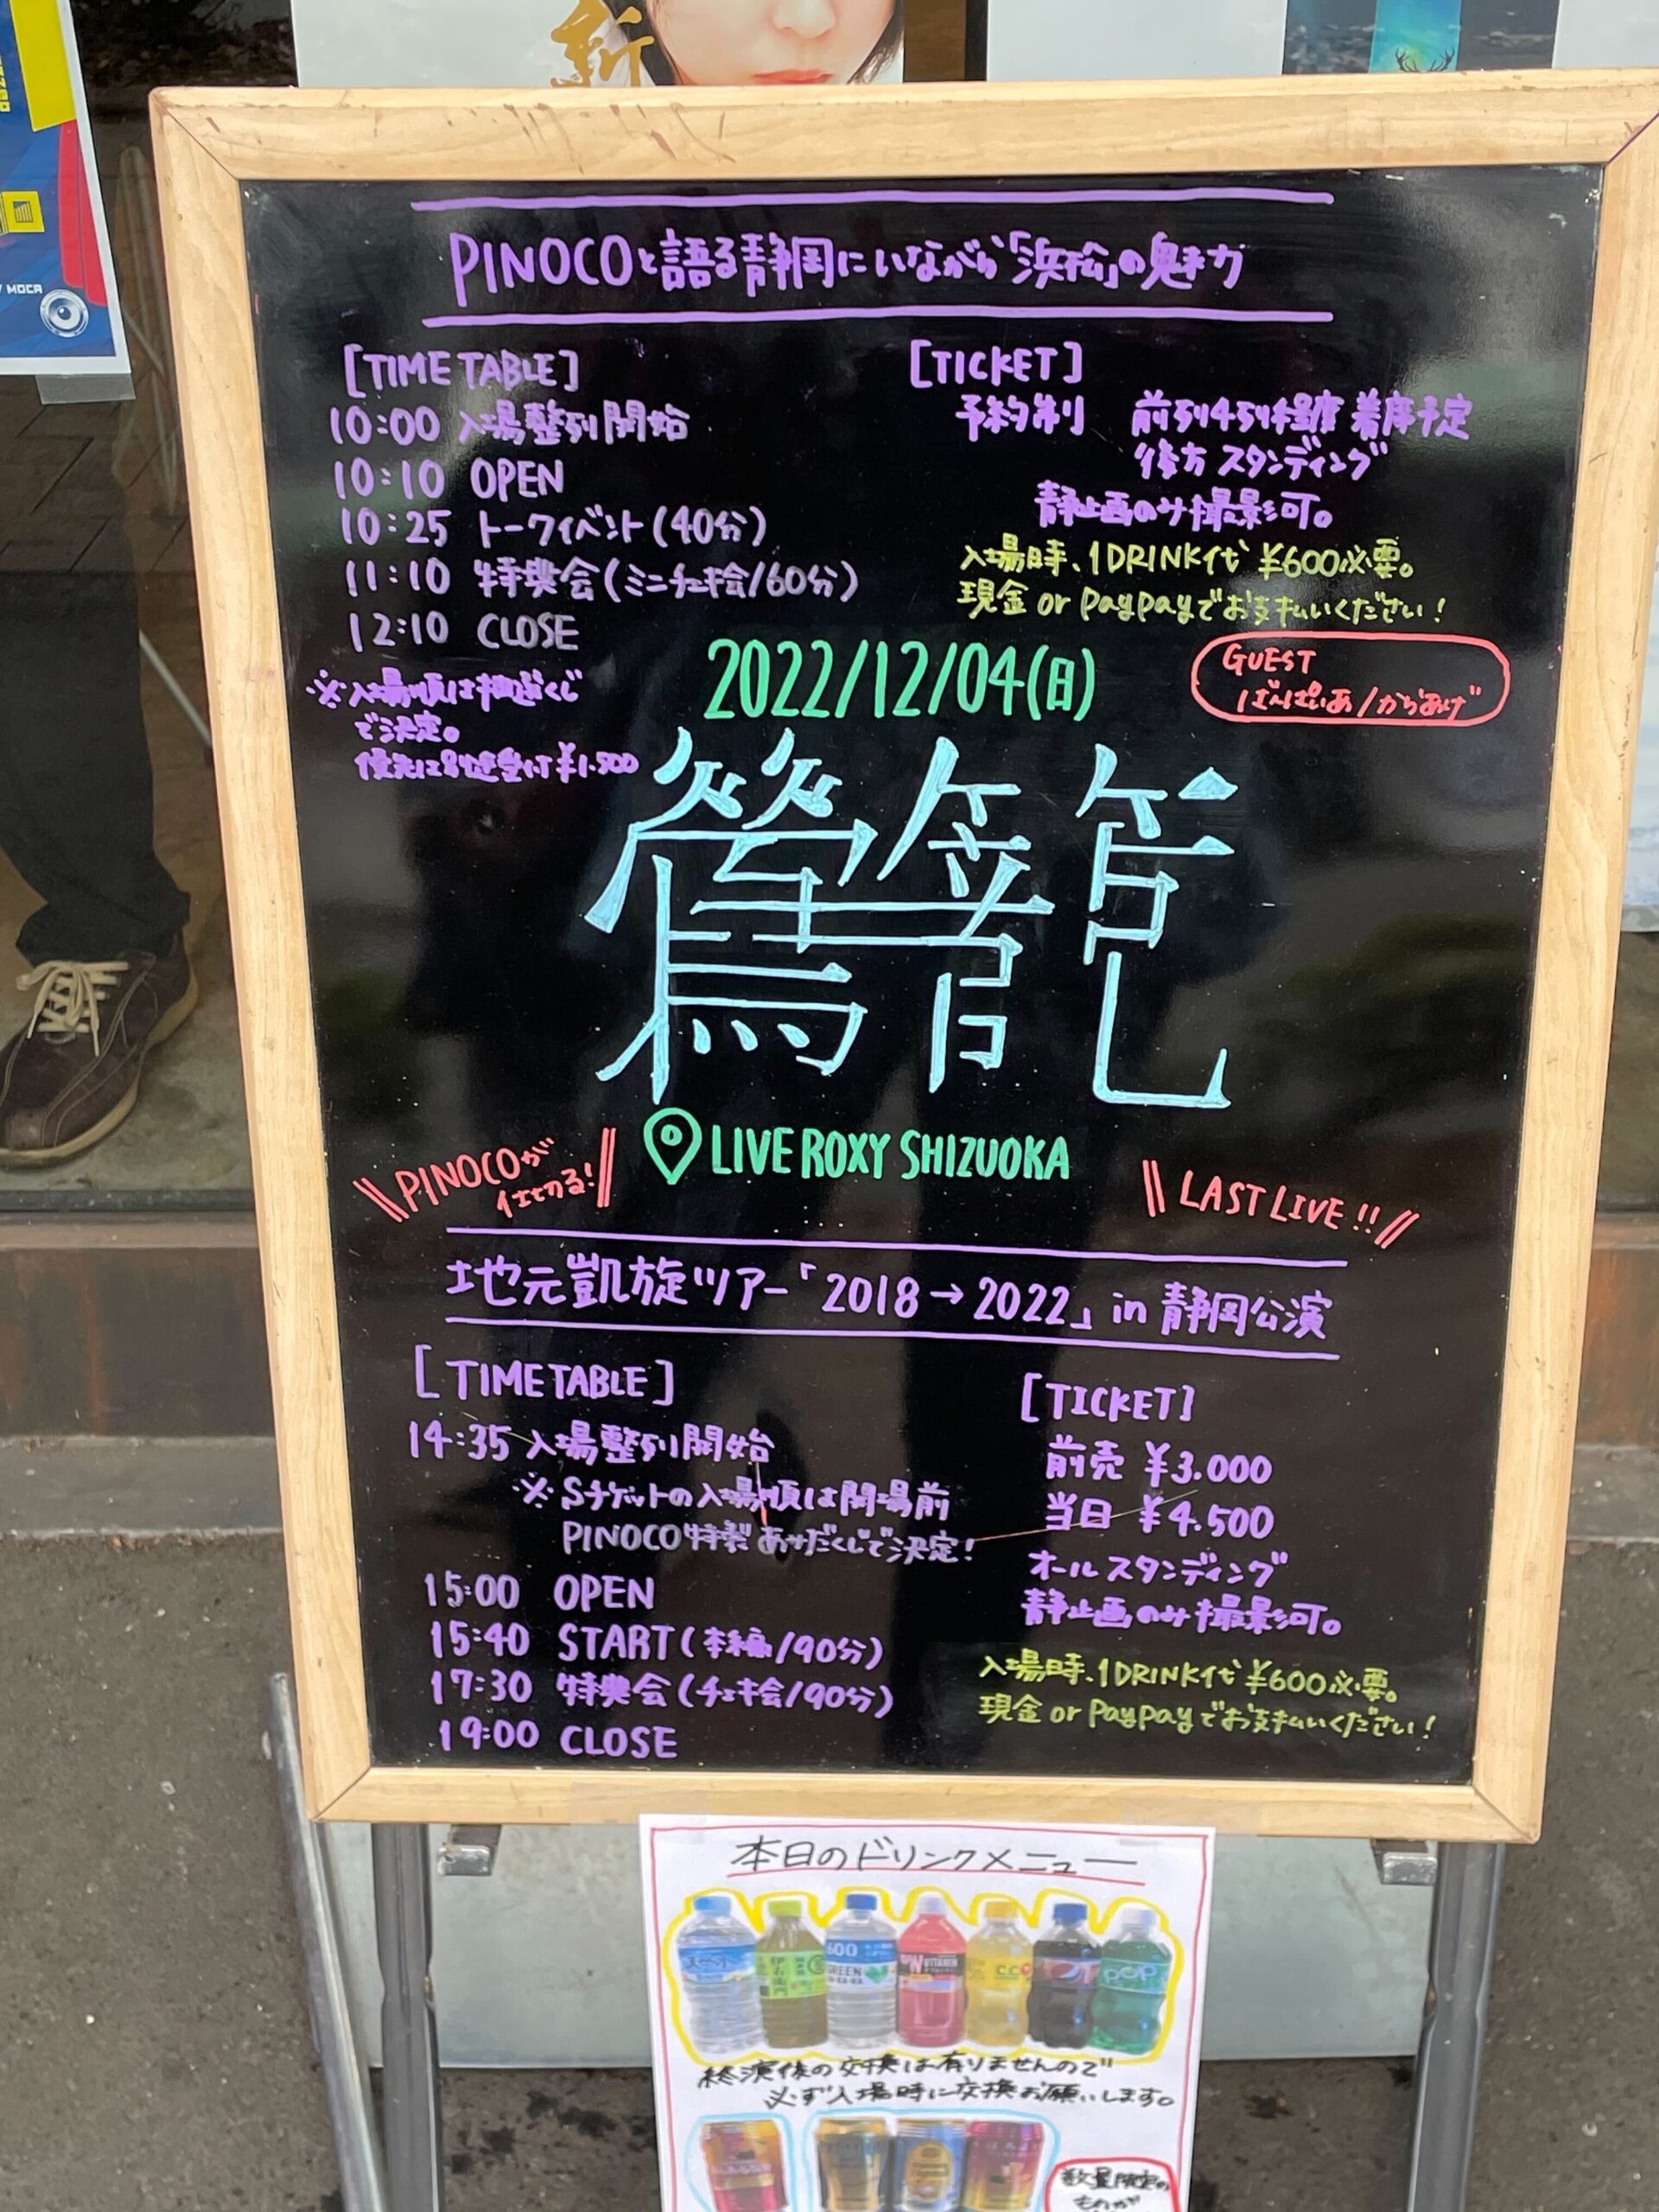 新
MOCA
PINOCOと語る静岡にいながら「浜松」の魅力
[TIME TABLE]
10:00 入場整列開始
10:10 OPEN
10:25 トークイベント(40分)
11:10 特典会(ミニチェキ会/60分)
12:10 CLOSE
※入場順は抽選くじ
で決定。
優先は別途受付¥1.500
[TICKET]
予約制 前列4列程度 着席予定
後方 スタンディング
静止画のみ撮影可。
入場時、1DRINK代 ¥600必要。
現金 or paypayでお支払いください!
2022/12/04(日)
GUEST
ばんぱいあ/からあげ
鶯籠
LIVE ROXY SHIZUOKA
\\PINOCOが
仕切る!//
\\LAST LIVE!!//
地元凱旋ツアー「2018→2022」in 静岡公演
[TIMETABLE]
14:35 入場整列開始
※Sチケットの入場順は開場前
PINOCO特製あみだくじで決定!
15:00 OPEN
15:40 START(本編/90分)
17:30 特典会(チェキ会/90分)
19:00 CLOSE
[TICKET]
前売 ¥3.000
当日 ¥4.500
オールスタンディング
静止画のみ撮影可。
入場時、1DRINK代 ¥600必要。
現金 or paypayでお支払いください!
本日のドリンクメニュー
600
GREEN
VITAMIN
C.C.
POP
終演後の交換は有りませんので
必ず入場時に交換お願いします。
数量限定の